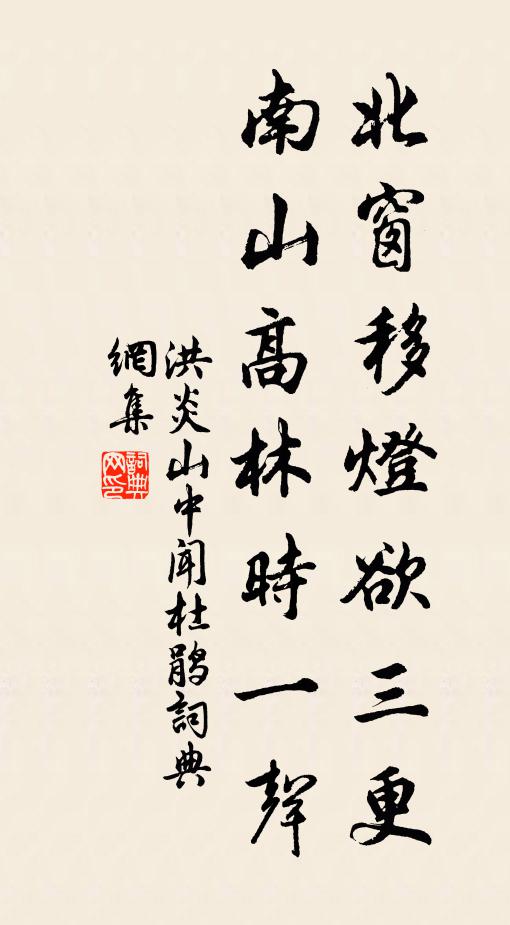 北窗移燈欲三更
南山高林時一聲
洪炎山中闻杜鹃詞典
網集
詞典
网印